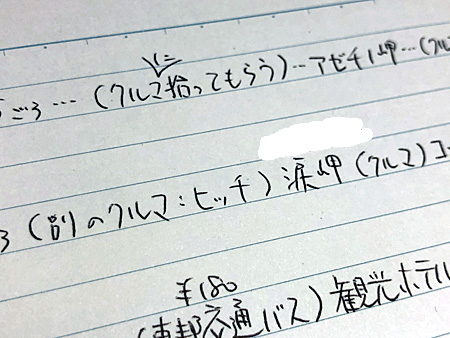 ごろ…(クルマに拾ってもらう)…アゼチノ岬…(クル
3(別のクルマ:ヒッチ)涙岬(クルマ)コ
¥180
(東邦交通バス)観光ホテル